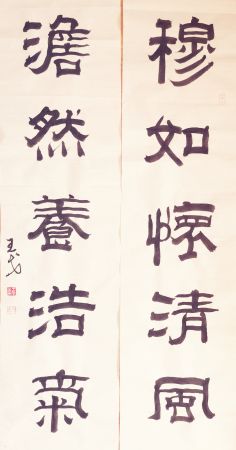 穆如懷清風
澹然養浩氣